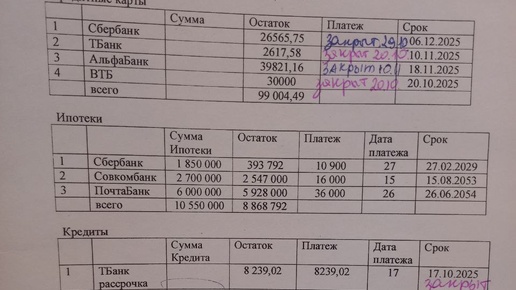 Кредитные карты
Сумма Остаток Платеж Срок
1 Сбербанк 26565,75 закрыт 29.10 06.12.2025
2 ТБанк 2617,58 закрат 20.10 10.11.2025
3 АльфаБанк 39821,16 закрыт 10.11 18.11.2025
4 ВТБ 30000 закрат 20.10 20.10.2025
всего 99 004,49
Ипотеки
Сумма Ипотеки Остаток Платеж Дата платежа Срок
1 Сбербанк 1 850 000 393 792 10 900 27 27.02.2029
2 Совкомбанк 2 700 000 2 547 000 16 000 15 15.08.2053
3 ПочтаБанк 6 000 000 5 928 000 36 000 26 26.06.2054
всего 10 550 000 8 868 792
Кредиты
Сумма Кредита Остаток Платеж Дата платежа Срок
1 ТБанк рассрочка 8 239,02 8239,02 17 17.10.2025
закрыт